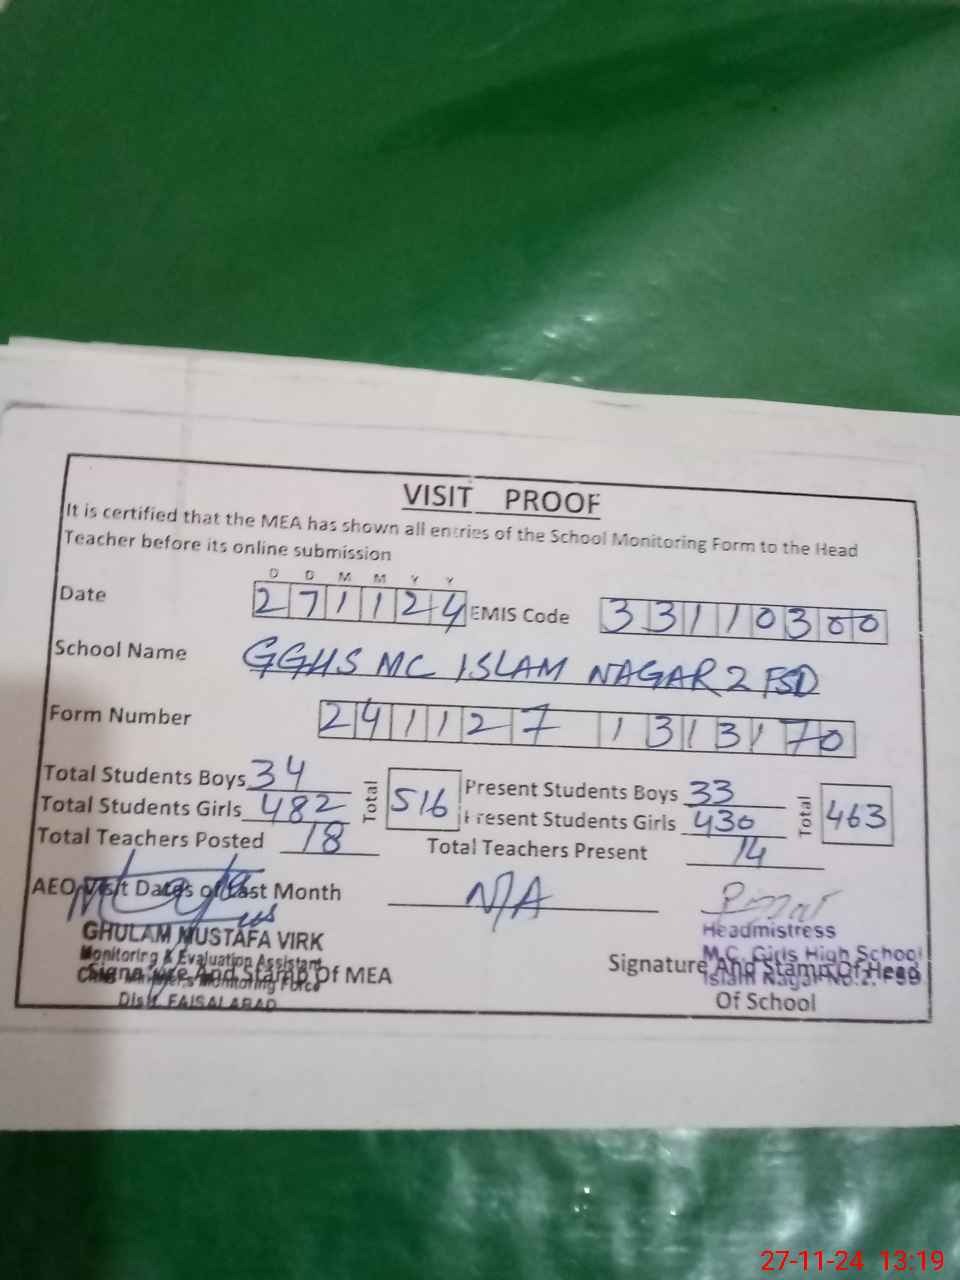 VISIT PROOF
It is certified that the MEA has shown all entries of the School Monitoring Form to the Head
Teacher before its online submission
D D M M Y Y
Date 271124 EMIS Code 33110300
School Name GGHS MC ISLAM NAGAR 2 FSD
Form Number 241127 1313170
Total Students Boys 34 Total 516 Present Students Boys 33 Total 463
Total Students Girls 482 Present Students Girls 430
Total Teachers Posted 18 Total Teachers Present 14
AEO Visit Dates of Last Month N/A
GHULAM MUSTAFA VIRK
Monitoring & Evaluation Assistant
Chief Minister's Monitoring Force
Distt. FAISALABAD
Signature And Stamp Of MEA
Headmistress
M.C. Girls High School
Islam Nagar No.2. FSD
Signature And Stamp Of Head
Of School
27-11-24 13:19